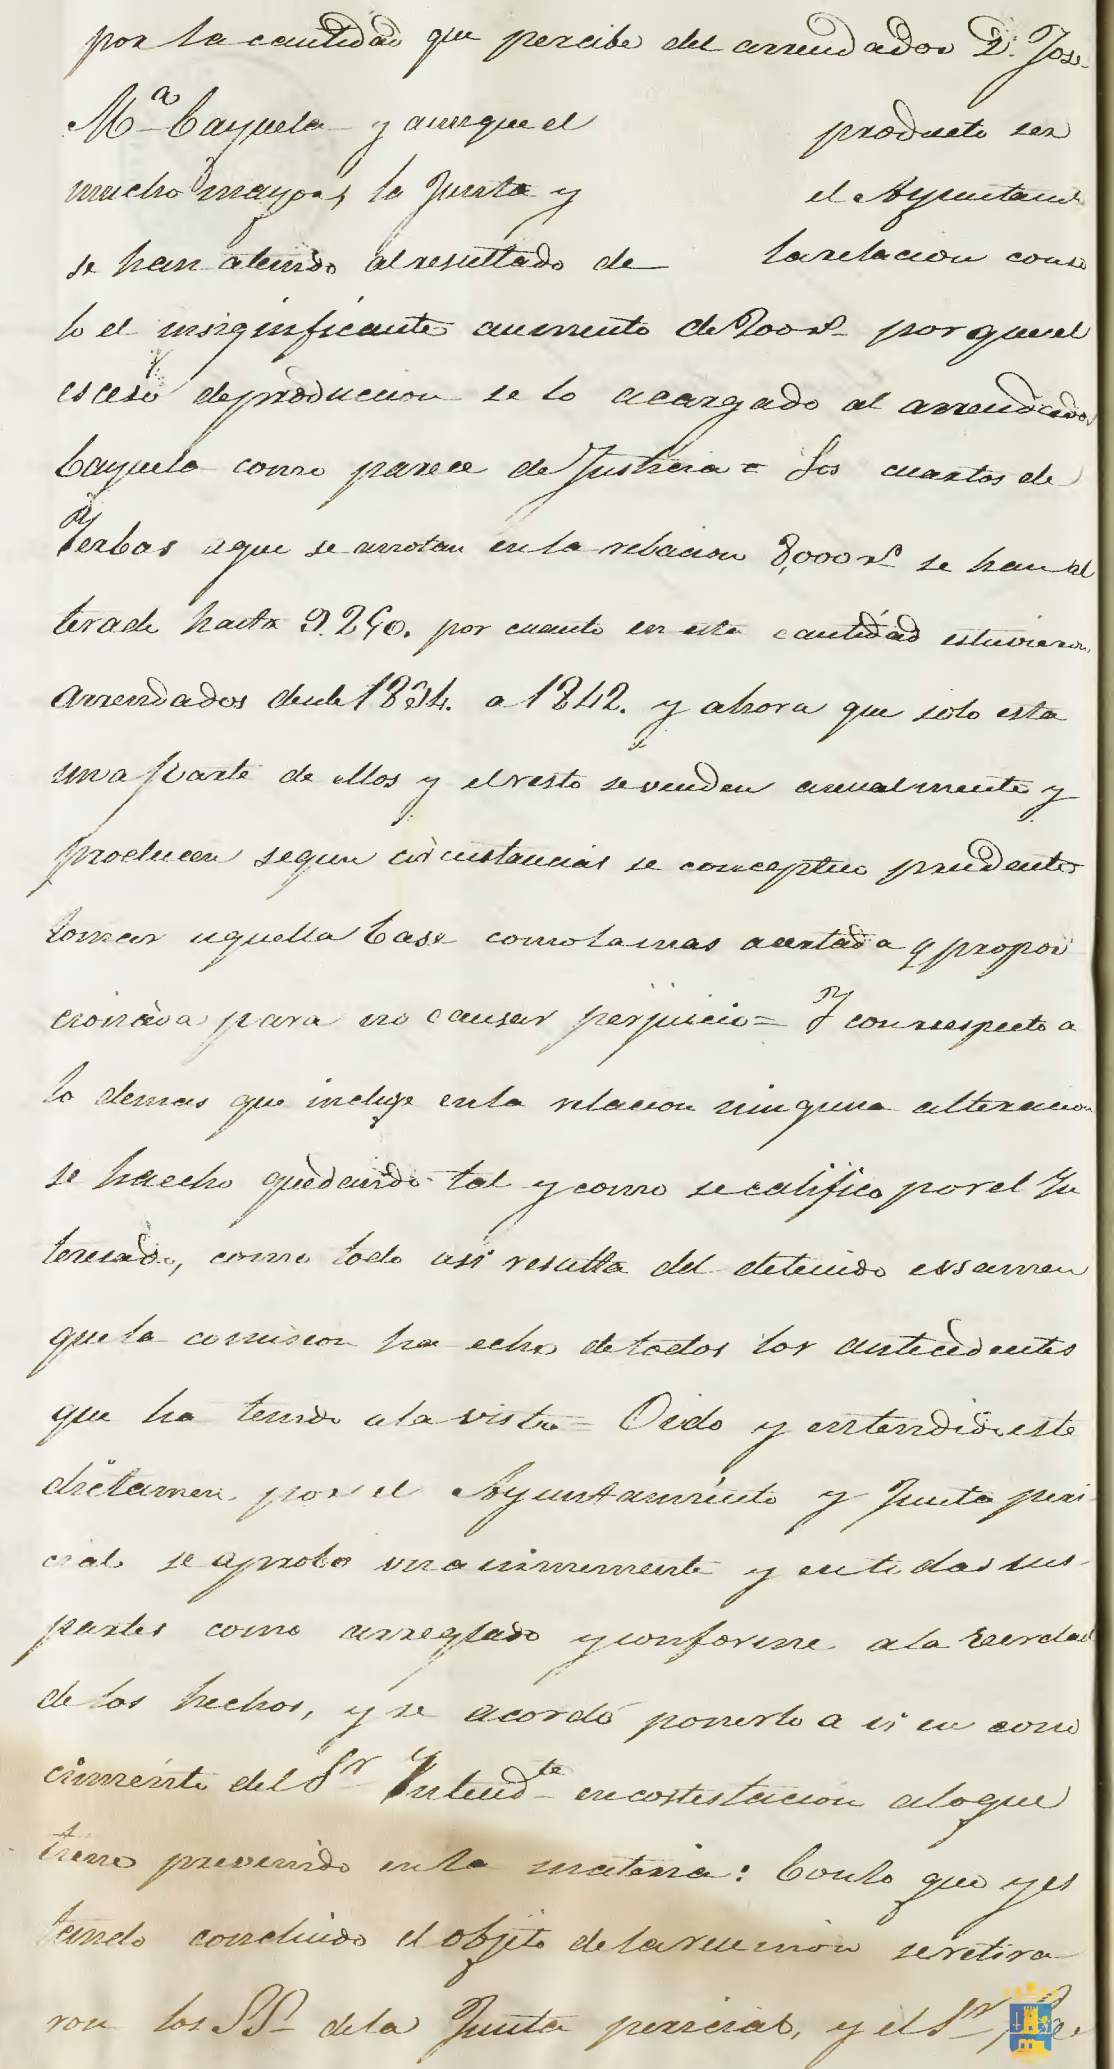 por la cantidad que percibe del arrendador D. Jose
M.ª Cayuela y aunque el producto sea
mucho mayor, la Junta y el Ayuntam.to
se han atenido al resultado de la relacion con so
lo el insignificante aumento de 200 r.s por que el
esceso de produccion se lo acargado al arrendador
Cayuela como parece de Justicia = Los cuartos de
Yerbas aque se anotan en la relacion 8,000 r.s se han al
terado hasta 9.240. por cuanto en esta cantidad estuvieron
arrendados desde 1834. a 1842. y ahora que solo esta
una parte de ellos y el resto se venden anualmente y
producen segun circustancias se conceptuo prudente
tomar aquella base como la mas acertada y propor
cionada para no causar perjuicio = Y con respecto a
lo demas que incluye en la relacion ninguna alteracion
se ha echo quedando tal y como se califico por el Yn
teresado, como todo asi resulta del detenido essamen
que la comision ha echo de todos los antecedentes
que ha tenido a la vista = Oido y entendido este
dictamen por el Ayuntamiento y Junta peri
cial se aprobo unanimemente y en todas sus
partes como arreglado y conforme a la verdad
de los hechos, y se acordó ponerlo a si en cono
cimiento del S.r Yntend.te en costestacion a lo que
tiene prevenido en la materia: Con lo que y es
tando concluido el objeto de la reunion se retira
ron los SS. de la Junta pericial, y el S.r